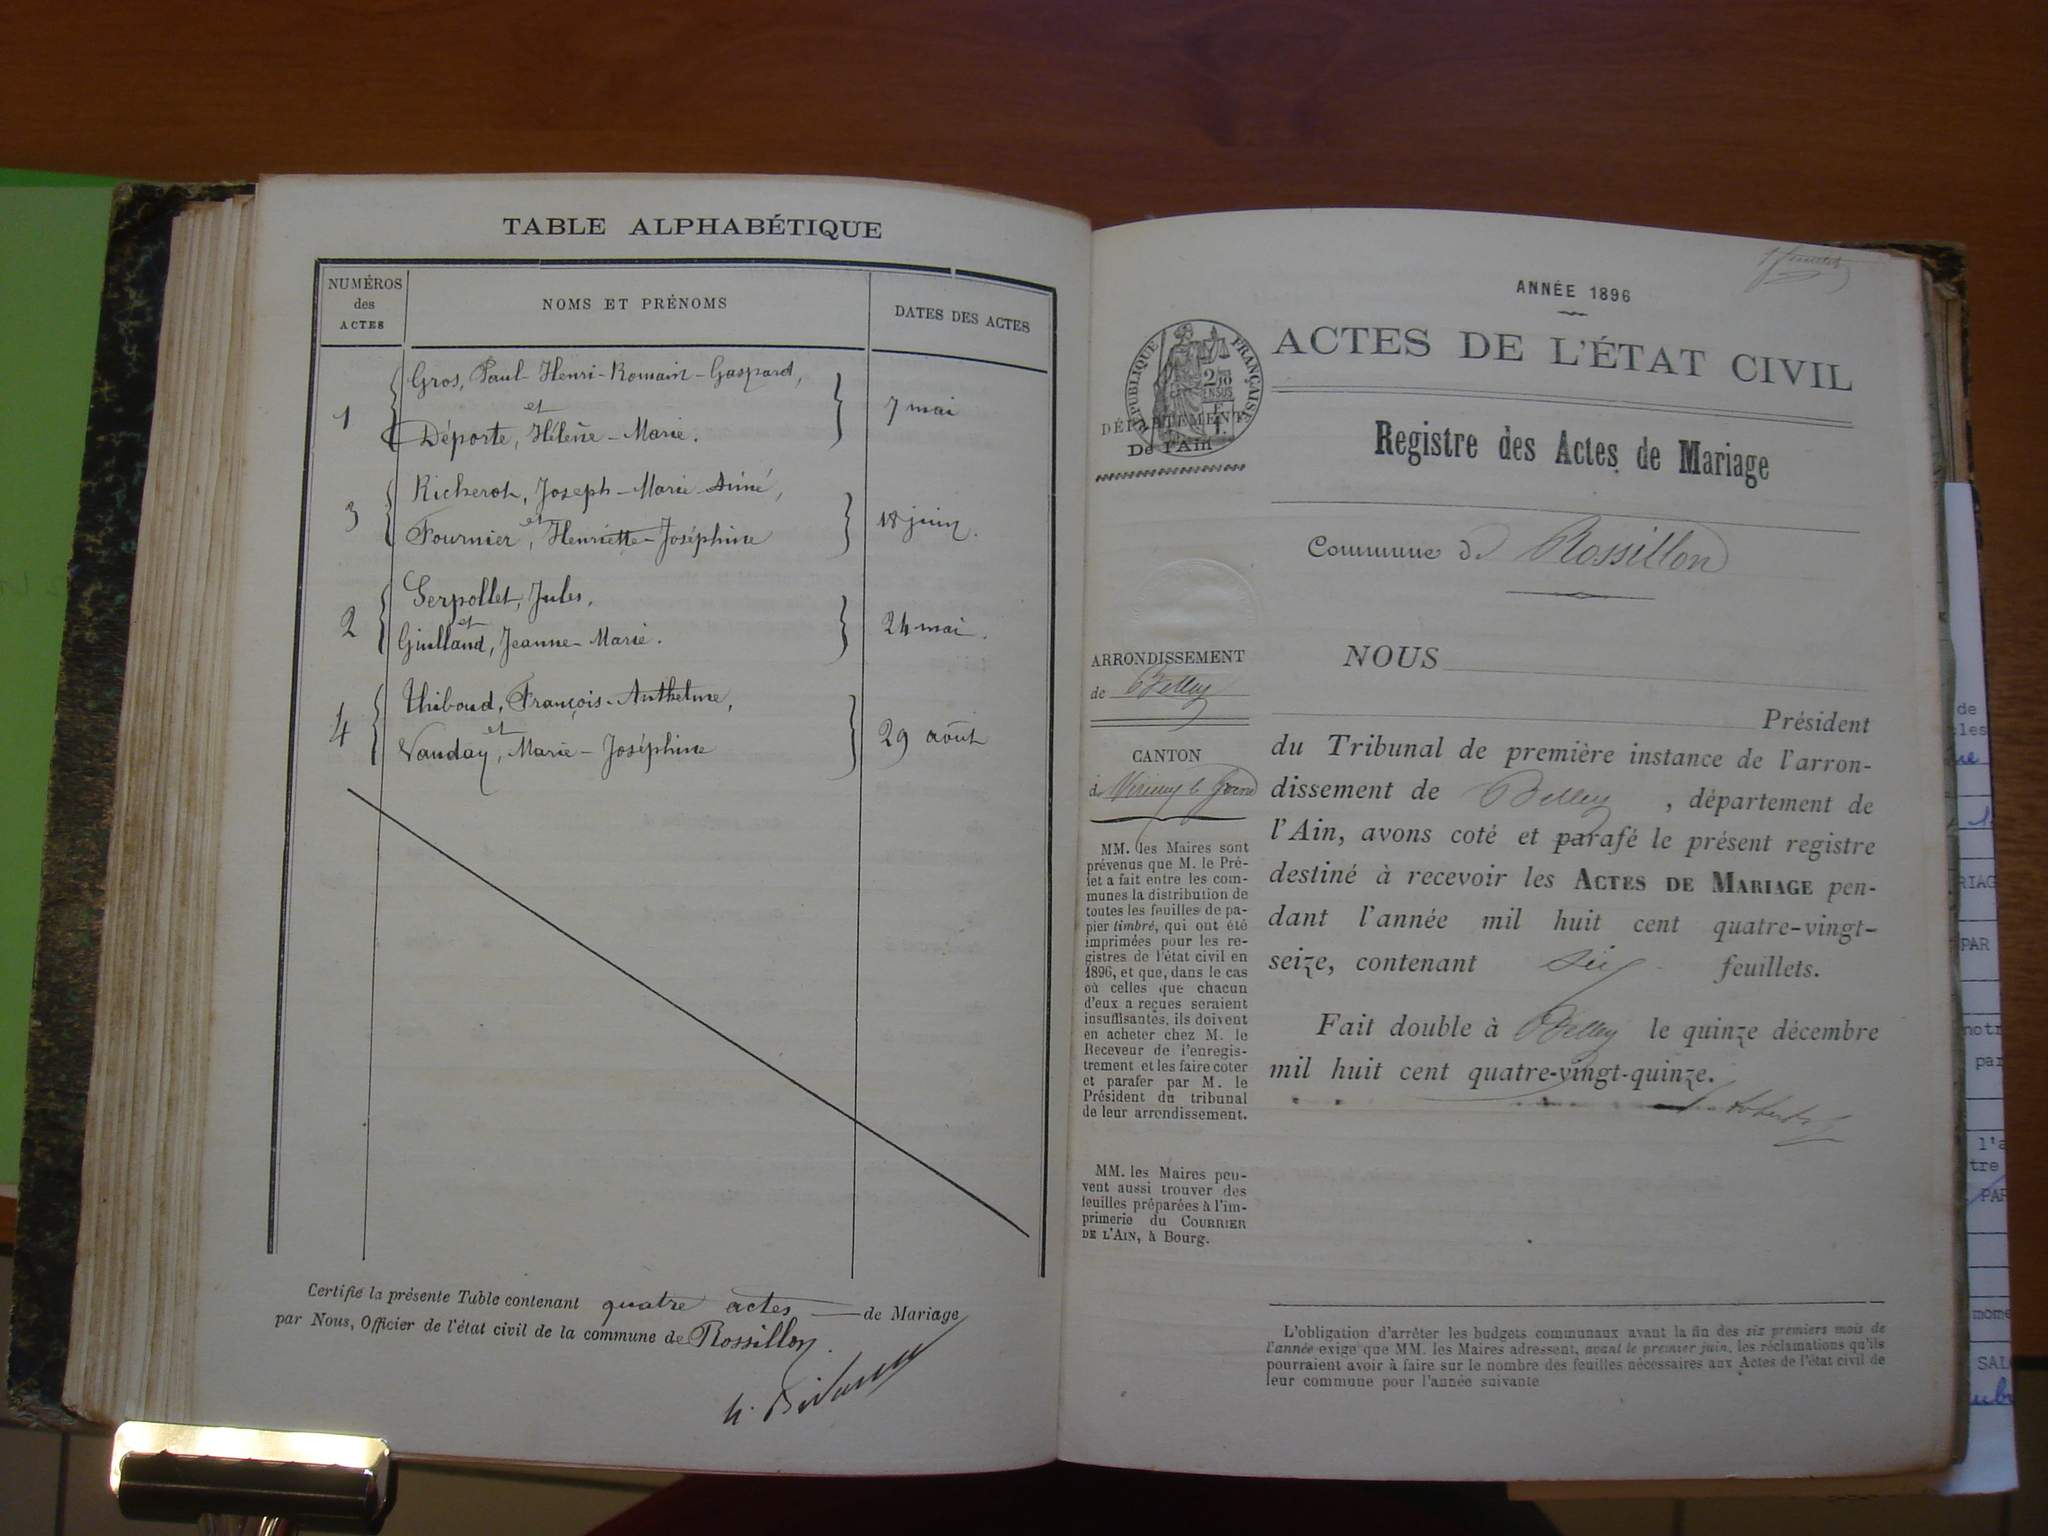 TABLE ALPHABÉTIQUE
NUMÉROS
des
ACTES
NOMS ET PRÉNOMS
DATES DES ACTES
1
Gros, Paul-Henri-Romain-Gaspard,
et
Déporte, Hélène-Marie.
7 mai
3
Richerot, Joseph-Marie-Aimé,
et
Fournier, Henriette-Joséphine
18 juin.
2
Serpollet, Jules,
et
Guilland, Jeanne-Marie.
24 mai.
4
Thiboud, François-Anthelme,
et
Vauday, Marie-Joséphine
29 août
Certifié la présente Table contenant quatre actes de Mariage
par Nous, Officier de l'état civil de la commune de Rossillon.
1er feuillet
ANNÉE 1896
ACTES DE L'ÉTAT CIVIL
RÉPUBLIQUE FRANÇAISE
DÉPARTEMENT
De l'Ain
Registre des Actes de Mariage
Commune de Rossillon
ARRONDISSEMENT
de Belley
CANTON
de Virieu le Grand
MM. les Maires sont
prévenus que M. le Pré-
fet a fait entre les com-
munes la distribution de
toutes les feuilles de pa-
pier timbré, qui ont été
imprimées pour les re-
gistres de l'état civil en
1896, et que, dans le cas
où celles que chacun
d'eux a reçues seraient
insuffisantes, ils doivent
en acheter chez M. le
Receveur de l'enregis-
trement et les faire coter
et parafer par M. le
Président du tribunal
de leur arrondissement.
MM. les Maires peu-
vent aussi trouver des
feuilles préparées à l'im-
primerie du COURRIER
DE L'AIN, à Bourg.
NOUS
Président
du Tribunal de première instance de l'arron-
dissement de Belley, département de
l'Ain, avons coté et parafé le présent registre
destiné à recevoir les ACTES DE MARIAGE pen-
dant l'année mil huit cent quatre-vingt-
seize, contenant six feuillets.
Fait double à Belley le quinze décembre
mil huit cent quatre-vingt-quinze.
L'obligation d'arrêter les budgets communaux avant la fin des six premiers mois de
l'année exige que MM. les Maires adressent, avant le premier juin, les réclamations qu'ils
pourraient avoir à faire sur le nombre des feuilles nécessaires aux Actes de l'état civil de
leur commune pour l'année suivante